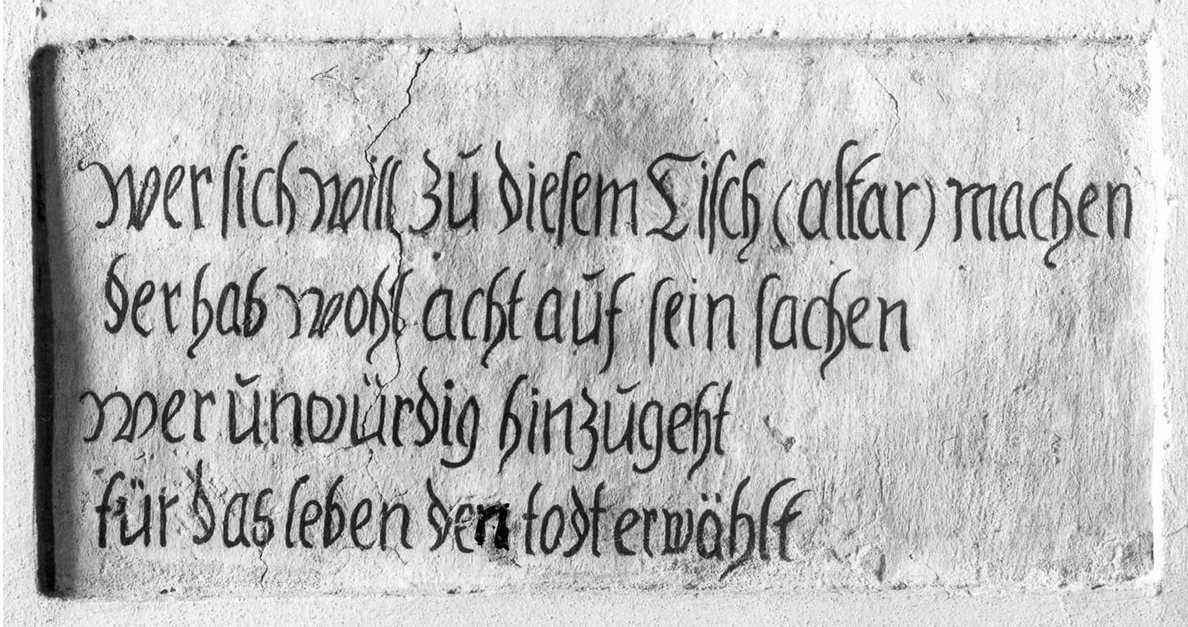 wer sich will zu diesem Tisch (altar) machen
der hab wohl acht auf sein sachen
wer unwürdig hinzugeht
für das leben den todt erwählt